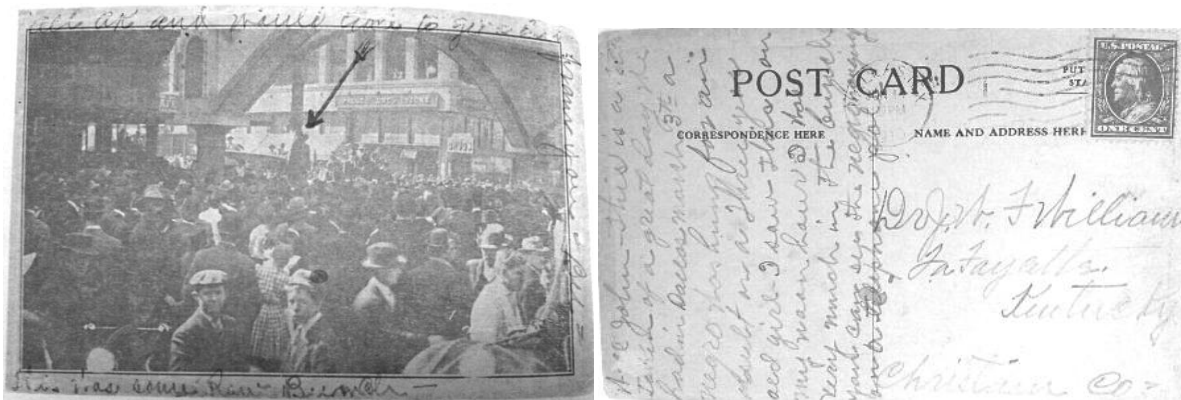 All OK and would
from you Bill
This was some Raw Bunch —
POST CARD
CORRESPONDENCE HERE
NAME AND ADDRESS HERE
U.S. POSTAGE
ONE CENT
John - This is a
token of a great day we
had in Dallas march 3rd a
negro was hung for an
assault on a three year
old girl - I saw this on
my noon hour. I was
very much in the bunch
you can see the negro hanging
on a telephone pole.
Dr J.W. F Williams
LaFayette.
Kentucky
Christian Co